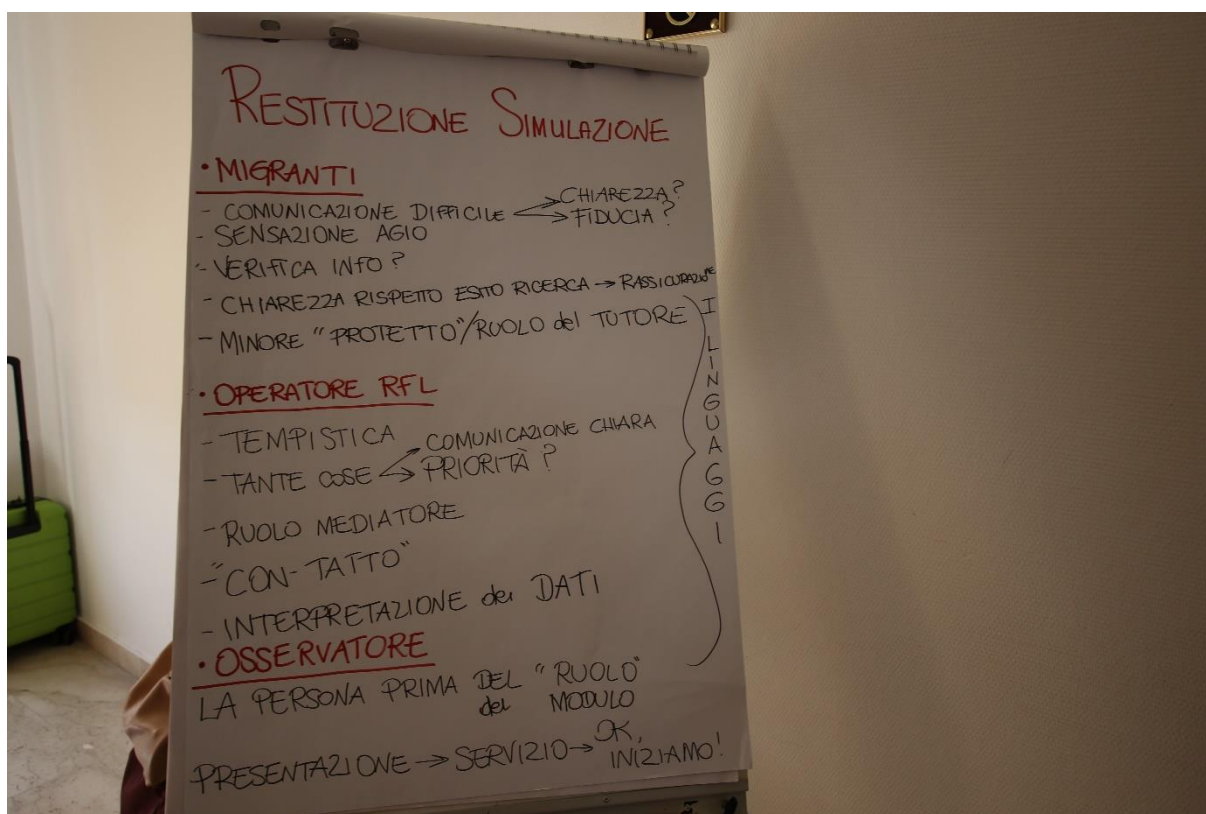 RESTITUZIONE SIMULAZIONE
• MIGRANTI
- COMUNICAZIONE DIFFICILE → CHIAREZZA?
→ FIDUCIA?
- SENSAZIONE AGIO
- VERIFICA INFO?
- CHIAREZZA RISPETTO ESITO RICERCA → RASSICURAZIONE
- MINORE "PROTETTO"/RUOLO del TUTORE
I LINGUAGGI
• OPERATORE RFL
- TEMPISTICA
- TANTE COSE → COMUNICAZIONE CHIARA
→ PRIORITÀ?
- RUOLO MEDIATORE
- "CON-TATTO"
- INTERPRETAZIONE dei DATI
• OSSERVATORE
LA PERSONA PRIMA DEL "RUOLO"
del MODULO
PRESENTAZIONE → SERVIZIO → OK,
INIZIAMO!